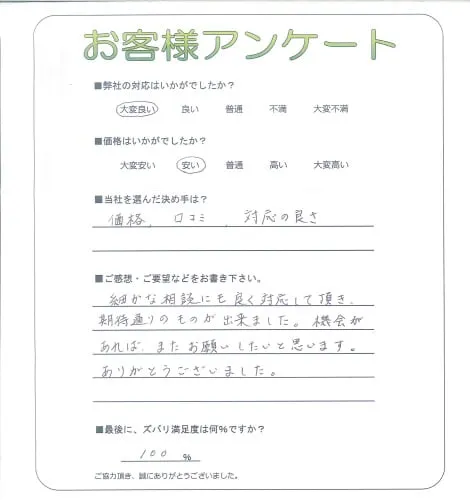 お客様アンケート
■弊社の対応はいかがでしたか？
大変良い 良い 普通 不満 大変不満
■価格はいかがでしたか？
大変安い 安い 普通 高い 大変高い
■当社を選んだ決め手は？
価格、口コミ、対応の良さ
■ご感想・ご要望などをお書き下さい。
細かな相談にも良く対応して頂き、
期待通りのものが出来ました。機会が
あれば、またお願いしたいと思います。
ありがとうございました。
■最後に、ズバリ満足度は何%ですか？
100 %
ご協力頂き、誠にありがとうございました。